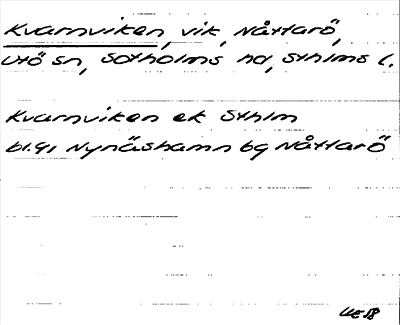 Kvarnviken, vik, Nåttarö,
Utö sn, Sotholms hd, Sthlms l.
Kvarnviken ek Sthlm
bl.91 Nynäshamn bg Nåttarö